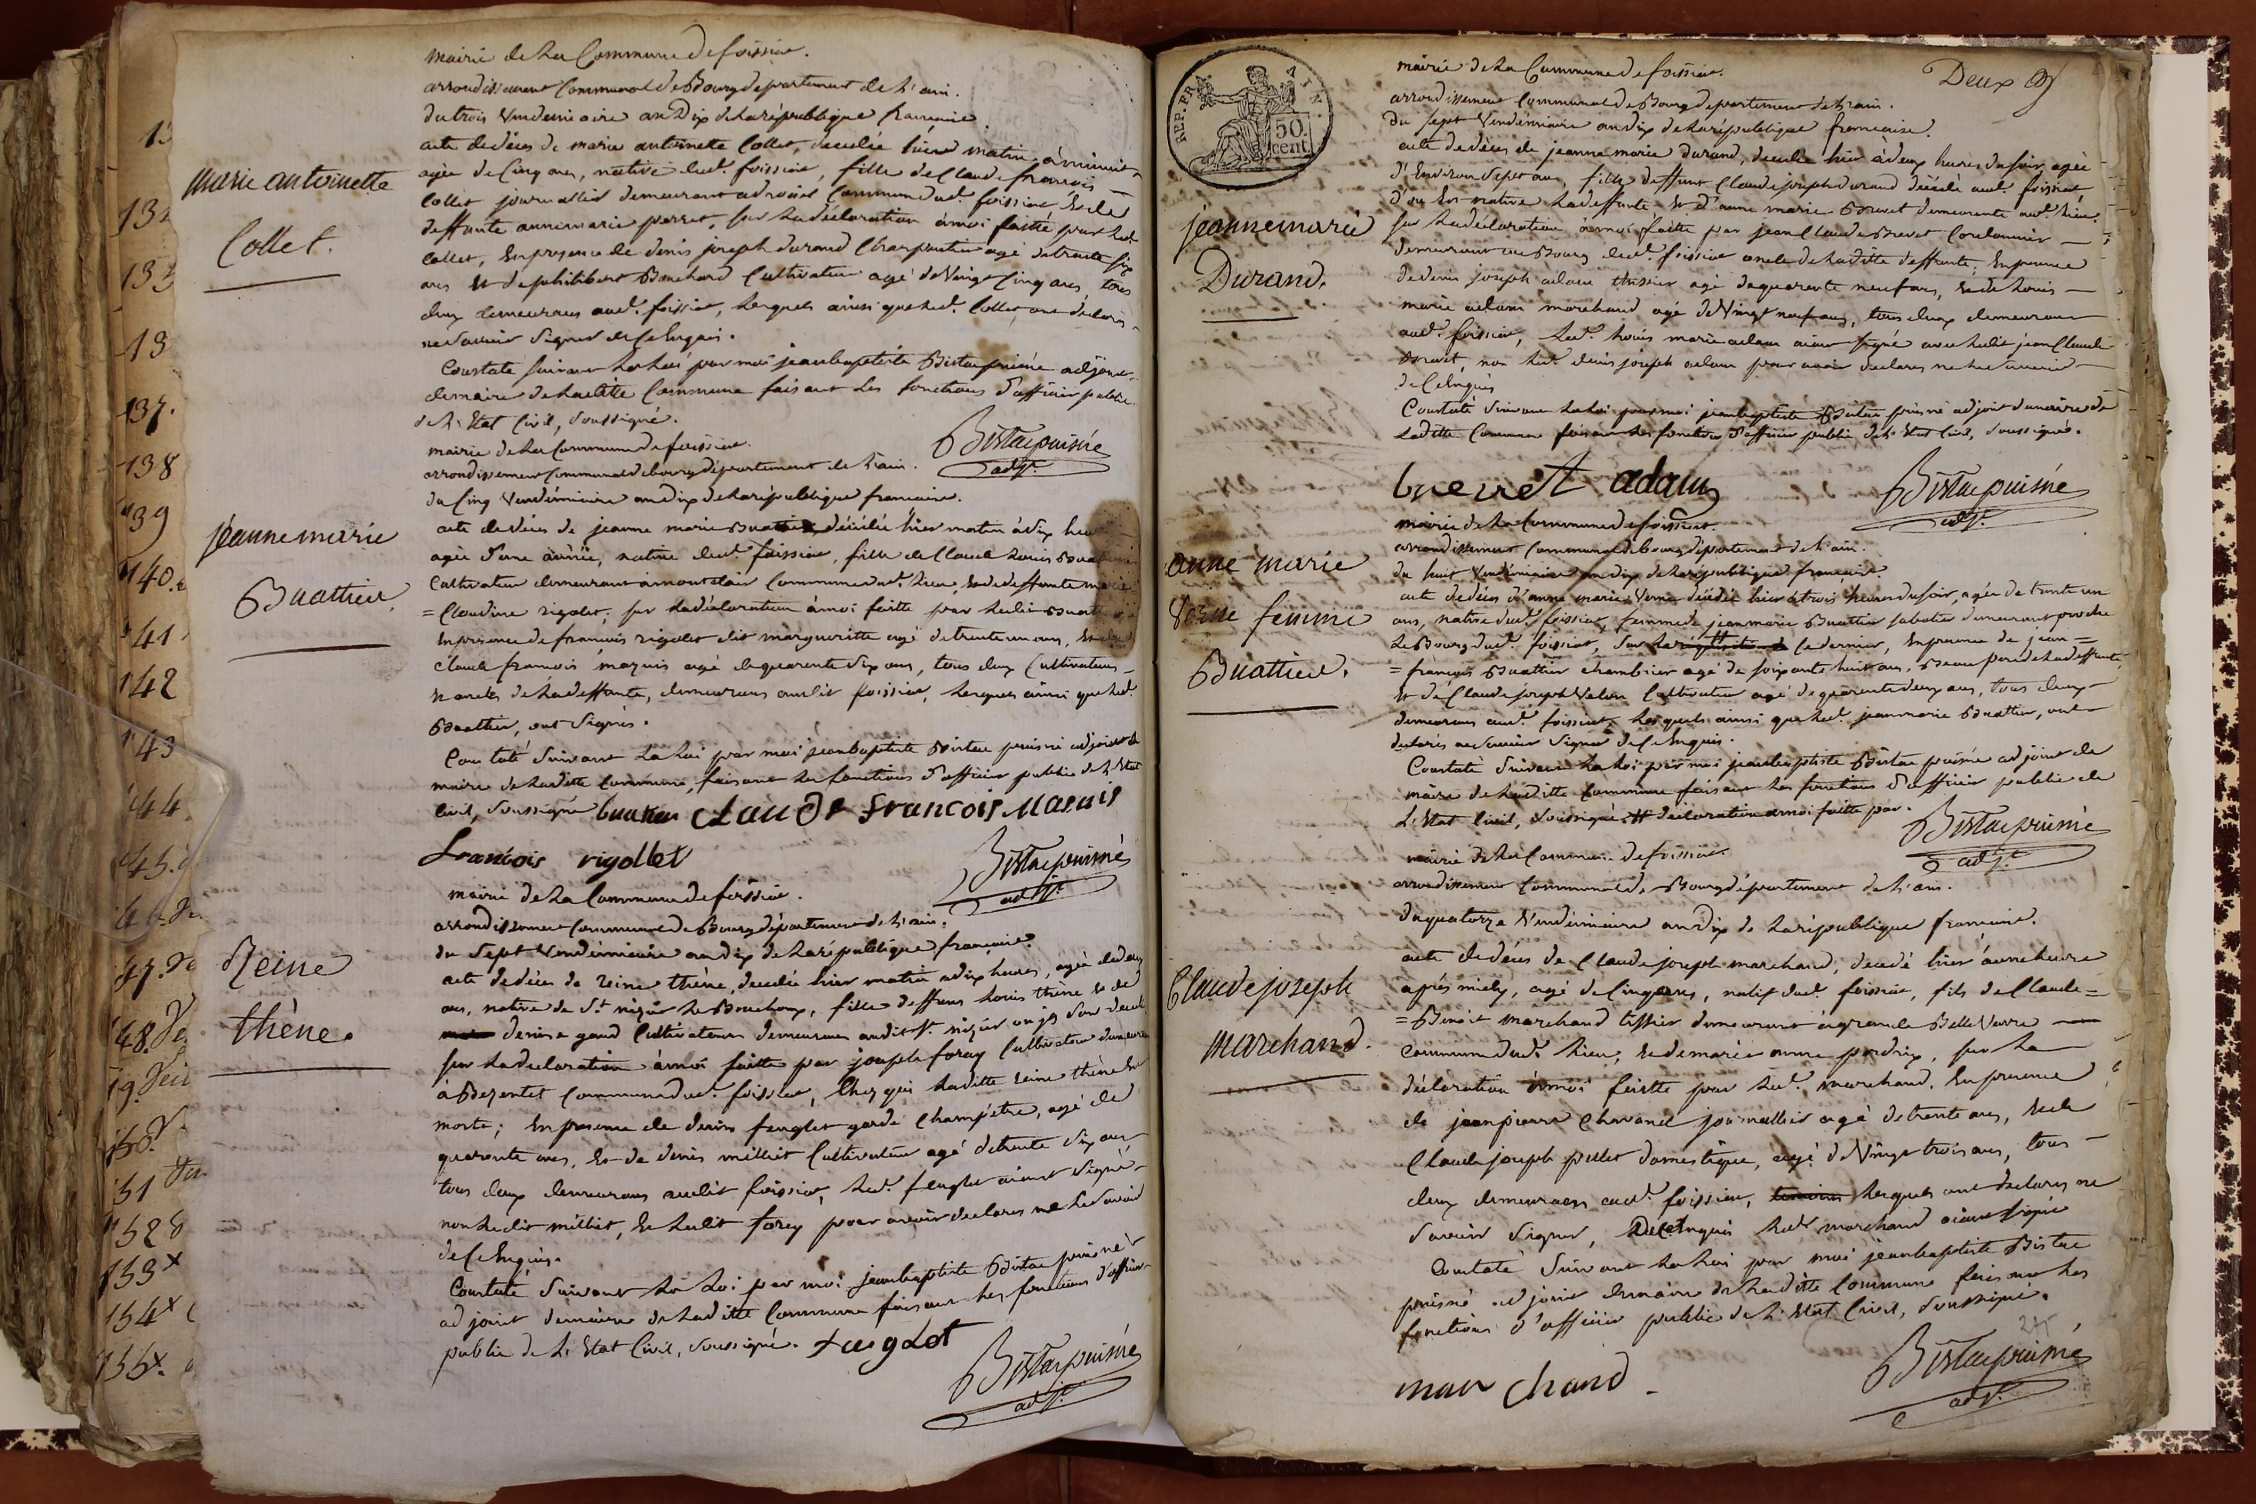 mairie de La Commune de foissiat.
arrondissement Communal de Bourg departement de L'ain.
du trois Vendemiaire an Dix de La république francaise.
acte de décés de marie antoinette Collet, decedée hier matin à minuit
agée de Cinq ans, native dud. foissiat, fille de Claude francois
Collet journallier demeurant Commune dud. foissiat et de
deffunte annemarie perret, sur La déclaration à moi faitte par led.
Collet, En presence de denis joseph durand Charpentier agé de trente six
ans Et de philibert Bouchard Cultivateur agé de Vingt Cinq ans, tous
deux demeurans aud. foissiat, Lesquels ainsi que Led. Collet ont déclarés
ne Savoir Signer de Ce Enquis.
Constaté Suivant La Loi par moi jean baptiste Bistac puisné adjoint
de maire de Laditte Commune faisant Les fonctions d'officier public
de L'Etat Civil, Soussigné.
Bistac puisné
adjt.
marie antoinette
Collet.
mairie de La Commune de foissiat.
arrondissement Communal de bourg département de L'ain.
du Cinq Vendémiaire an dix de La république francaise.
acte de décés de jeanne marie Buattier, décédée hier matin à dix heures
agée d'une année, native dud. foissiat, fille de Claude Louis Buattier
Cultivateur demeurant à montclair Commune dud. Lieu, Et de deffunte marie
= Claudine rigolet; sur La déclaration à moi faitte par Ledit Buattier
En présence de francois rigolet dit margueritte agé de trente un ans, Et de
Claude francois maquis agé de quarente Six ans, tous deux Cultivateurs
Et oncles de La deffunte, demeurans audit foissiat, Lesquels ainsi que Led.
Buattier, ont Signés.
Constaté Suivant La Loi par moi jean baptiste Bistac puisné adjoint de
maire de Laditte Commune, faisant Les fonctions d'officier public de L'Etat
Civil, Soussigné buatier Claude francois Maquis
francois rigollet
Bistac puisné
adjt.
jeanne marie
Buattier.
mairie de La Commune de foissiat.
arrondissement Communal de Bourg département de L'ain.
du Sept Vendémiaire an dix de La république française.
acte de décés de reine thène, decedée hier matin a dix heures, agée de deux
ans, native de St. nizier Le Bouchoux, fille de deffunt Louis thène Et de
denise gand Cultivateurs demeurans audit St. nizier
sur La declaration à moi faitte par joseph foray Cultivateur demeurant
à Bezentet Commune dud. foissiat, Chez qui Laditte reine thène Est
morte; En presence de denis feuglet garde Champétre, agé de
quarente ans, Et de denis milliet Cultivateur agé de trente Six ans
tous deux demeurans audit foissiat, Led. feuglet aiant Signé
non Ledit milliet, Et Ledit foray pour avoir declarés ne Le Savoir
de Ce Enquis.
Constaté Suivant La Loi par moi jean baptiste Bistac puisné
adjoint de maire de Laditte Commune faisant Les fonctions d'officier
public de L'Etat Civil, Soussigné. feuglet
Bistac puisné
adjt.
Reine
thène.
137.
138
139
140.
141
142
143
144.
145.
147.
148.
150.
151
152
153
154
155.
REP. FRA.
50.
cent.
Deux
mairie de La Commune de foissiat.
arrondissement Communal de Bourg département de L'ain.
du Sept Vendémiaire an dix de La république francaise.
acte de décés de jeanne marie durand, decedée hier à deux heures du soir, agée
d'Environ Sept ans, fille deffunt Claude joseph durand décédé aud. foissiat
d'ou Est native La deffunte Et d'anne marie Brevet demeurante aud. Lieu.
sur La déclaration à moi faitte par jean Claude Brevet Cordonnier
demeurant au Bourg dud. foissiat oncle de Laditte deffunte; En presence
de denis joseph adam tissier agé de quarente neuf ans, Et de Louis
marie adam marchand agé de Vingt neuf ans, tous deux demeurans
aud. foissiat, Led. Louis marie adam aiant signé avec Ledit jean Claude
Brevet, non Led. denis joseph adam pour avoir declares ne Le Savoir
de Ce Enquis
Constaté Suivant La Loi par moi jean baptiste Bistac puisné adjoint de maire de
Laditte Commune faisant Les fonctions d'officier public de L'Etat Civil, Soussigné.
brevet adam
Bistac puisné
adjt.
jeanne marie
Durand.
mairie de La Commune de foissiat.
arrondissement Communal de bourg département de L'ain.
du huit Vendémiaire an dix de La république française.
acte de décés d'anne marie Verne décédée hier à trois heures du soir, agée de trente un
ans, native dud. foissiat, femme de jean marie Buattier sabotier demeurant proche
Le Bourg dud. foissiat, Sur La Ce dernier, En presence de jean =
= francois Buattier chambrier agé de soixante huit ans, Beau pere de La deffunte,
Et de Claude joseph Cultivateur agé de quarente deux ans, tous deux
demeurans aud. foissiat, Lesquels ainsi que Led. jean marie Buattier, ont
declarés ne Savoir Signer de Ce Enquis.
Constaté Suivant La Loi par moi jean baptiste Bistac puisné adjoint de
maire de Laditte Commune faisant Les fonctions d'officier public de
L'Etat Civil, Soussigné. # déclaration à moi faitte par.
Bistac puisné
adjt.
anne marie
Verne femme
Buattier.
mairie de La Commune de foissiat.
arrondissement Communal de Bourg département de L'ain.
du quatorze Vendémiaire an Dix de La république francaise.
acte de décés de Claude joseph marchand, decedé hier à une heure
aprés midy, agé de Cinq ans, natif dud. foissiat, fils de Claude =
= Benoit marchand tissier demeurant a grande Belle Vavre
Commune dud. Lieu; Et de marie anne perdrix, sur La
déclaration à moi faitte par Led. marchand, En presence
de jean pierre Chavanel journallier agé de trente ans, Et de
Claude joseph pillet domestique, agé de Vingt trois ans, tous
deux demeurans aud. foissiat, Lesquels ont declares ne
Savoir Signer, de Ce Enquis Led. marchand aiant signé
Constaté Suivant La Loi par moi jean baptiste Bistac
puisné adjoint de maire de Laditte Commune faisant Les
fonctions d'officier public de L'Etat Civil, Soussigné.
mar chand
Bistac puisné
adjt.
Claude joseph
marchand.